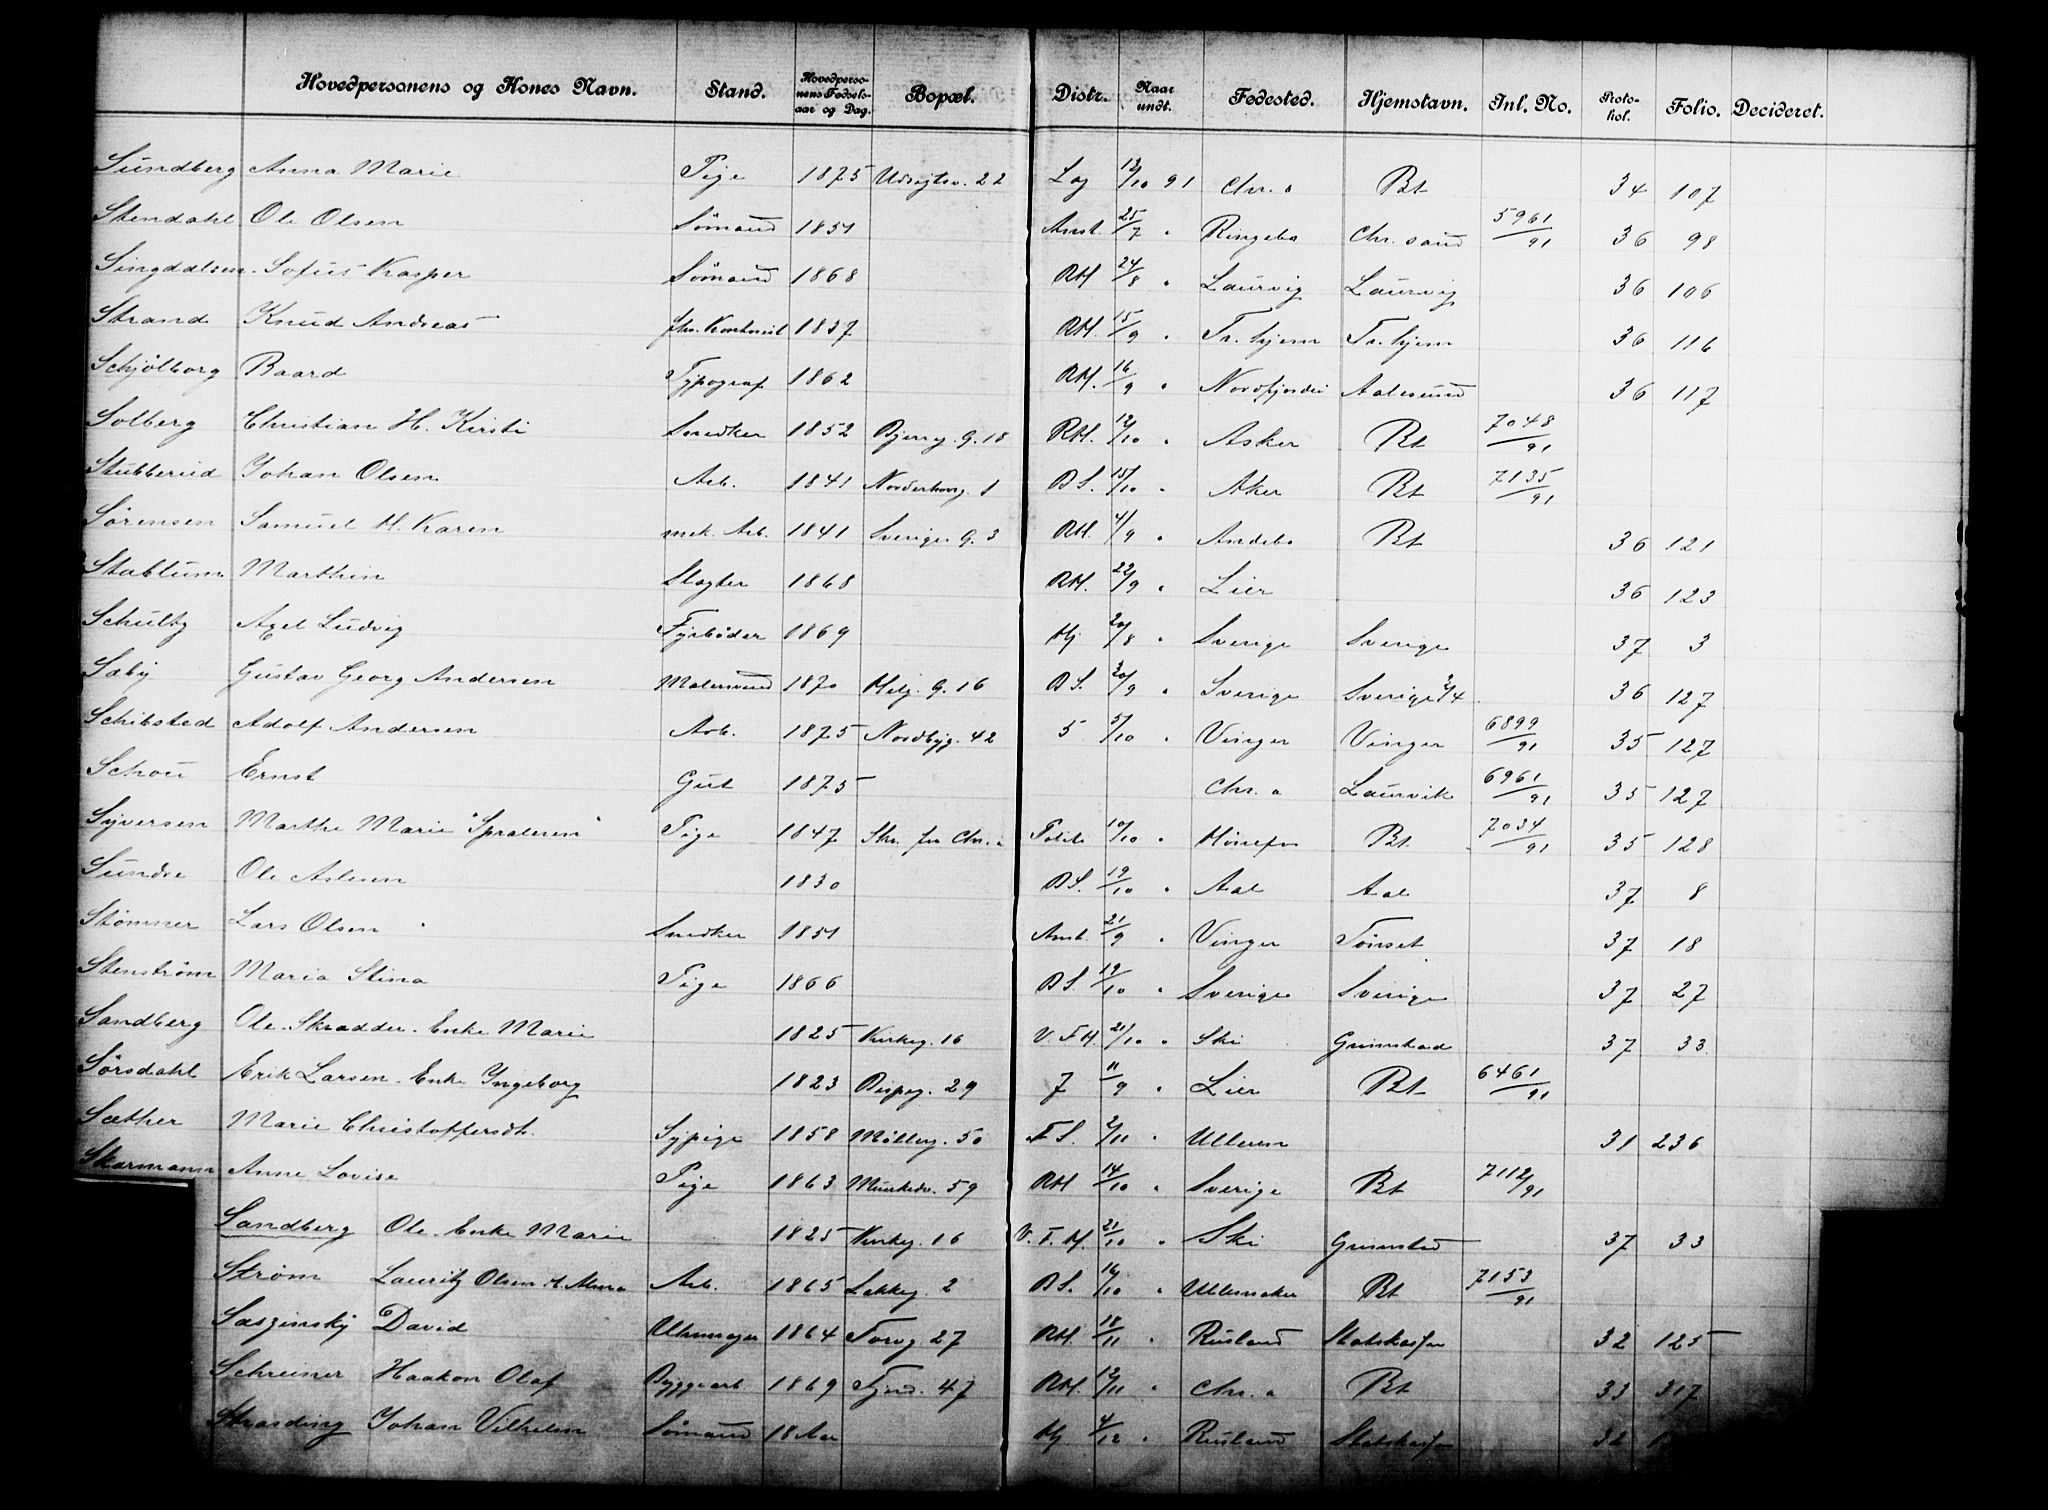 Hovedpersonens og Kones Navn. Stand. Hovedpersonens Fødselsaar og Dag. Bopæl. Distr. Naar undt. Fødested. Hjemstavn. Inl. No. Protokol. Folio. Decideret.
Sundberg Anna Marie Pige 1875 Udsigtsv. 22 Lag 13/10 91 Chr.a Bt 34 107
Stendahl Ole Olsen Sømand 1851 Amt. 25/7 " Ringebo Chr.sand 5961/91 36 98
Singdalsen Sofus Kasper Sømand 1868 RH 24/8 " Laurvig Laurvig 36 106
Strand Knud Andreas 1837 RH. 15/9 " Tr.hjem Tr.hjem 36 116
Schjølborg Baard Typograf 1862 RH. 16/9 " Nordfjordei Aalesund 36 117
Solberg Christian H. Kirsti Snedker 1852 Bjerreg. 18 RH. 12/10 " Asker Bt 7048/91
Stubberud Johan Olsen Arb. 1841 Norderhovg. 1 BS. 15/10 " Aker Bt 7135/91
Sørensen Samuel H. Karen mek. Arb. 1841 Sverigesg. 3 RH. 4/9 " Andebo Bt 36 121
Stabtum Marthin Slagter 1868 RH. 22/9 " Lier 36 123
Schultz Axel Ludvig Fyrbøder 1869 Hj 20/8 " Sverige Sverige 37 3
Sæby Gustav Georg Andersen Malersvend 1870 Helg. G. 16 BS. 30/9 " Sverige Sverige 2/4 36 127
Schibsted Adolf Andersen Arb. 1875 Nordbyg. 42 5 5/10 " Vinger Vinger 6899/91 35 127
Schou Ernst Gut 1875 Chr.a Laurvik 6961/91 35 127
Syversen Marthe Marie "Spraleren" Pige 1847 Str. fra Chr.a Politi 10/10 " Hønefos Bt 7034/91 35 128
Sundre Ole Aslesen 1830 BS. 19/10 " Aal Aal 37 8
Stømner Lars Olsen Snedker 1851 Amt. 21/9 " Vinger Tønset 37 18
Stenstrøm Maria Stina Pige 1866 BS. 19/10 " Sverige Sverige 37 27
Sandberg Ole Skrædder. Enke Marie 1825 Kirkeg. 16 V. F.H. 21/10 " Ski Grimstad 37 33
Sørsdahl Erik Larsen. Enke Ingeborg 1823 Bispeg. 29 7 11/9 " Lier Bt 6461/91
Sæther Marie Christoffersdt. Sypige 1858 Møllerg. 50 F.S. 2/11 " Ullern 31 236
Skarmann Anne Lovise Pige 1863 Munkedv. 59 RH 14/10 " Sverige Bt 7112/91
Sandberg Ole. Enke Marie 1825 Kirkeg. 16 V. F. H. 21/10 " Ski Grimstad 37 33
Strøm Lauritz Olsen H. Alma Arb. 1865 Lakkeg. 2 BS. 16/10 " Ullensaker Bt 7153/91
Sasginsky David Uhrmager 1864 Torvg 27 RH. 18/11 " Rusland Statskassen 32 125
Schreiner Haakon Olaf Byggearb. 1869 Tøyeng. 47 RH. 12/11 " Chr.a Bt 33 317
Strasding Johan Vilhelm Sømand 18 Aar Hj 4/12 " Rusland Statskassen 32